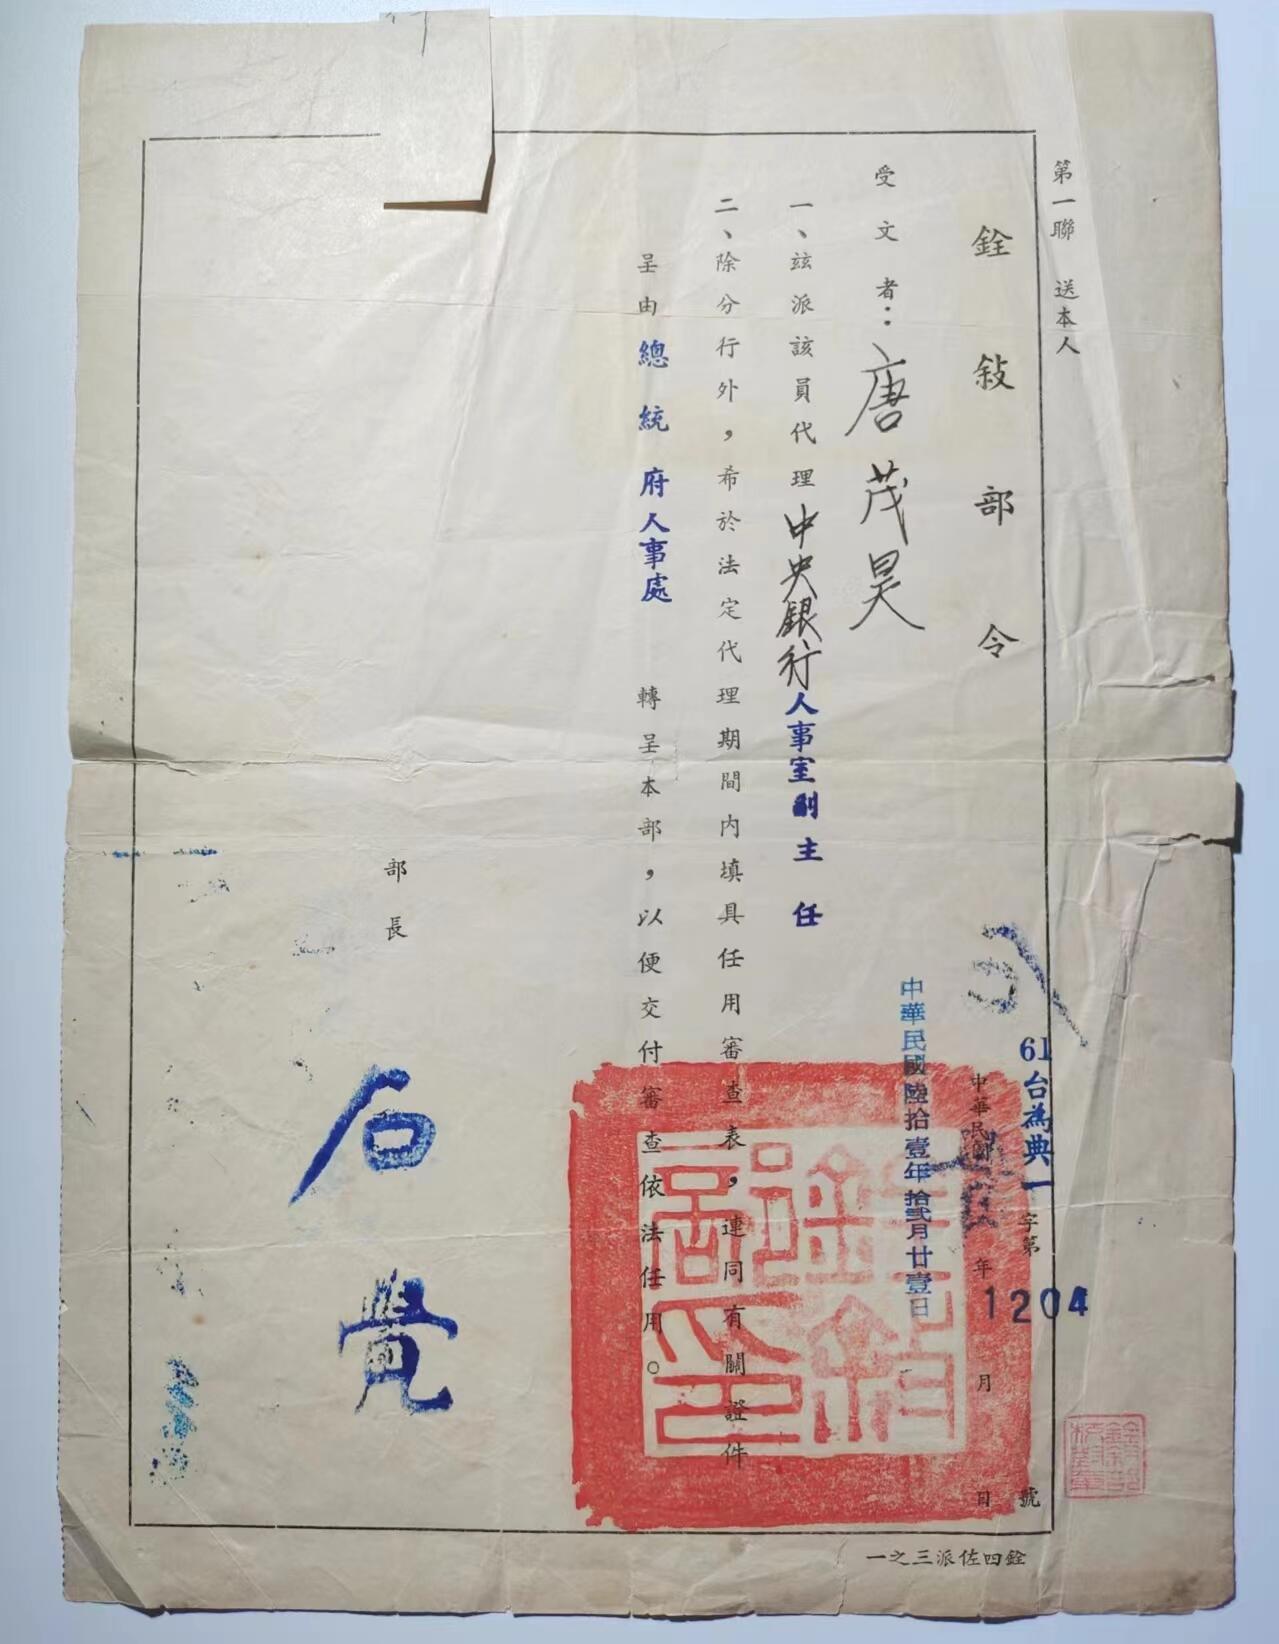 第一聯　送本人
銓敍部令
61台為典一字第1204號
中華民國　年　月　日
中華民國陸拾壹年拾貳月廿壹日
受文者：唐茂昊
一、茲派該員代理中央銀行人事室副主任
二、除分行外，希於法定代理期間內填具任用審查表，連同有關證件
呈由總統府人事處　轉呈本部，以便交付審查依法任用。
部長　石覺
銓敍部印
銓四佐派三之一